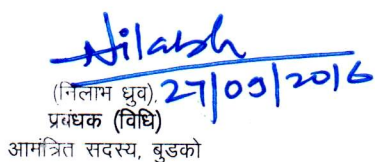 Nilabh
(निलाभ ध्रुव) 27/09/2016
प्रबंधक (विधि)
आमंत्रित सदस्य, बुडको